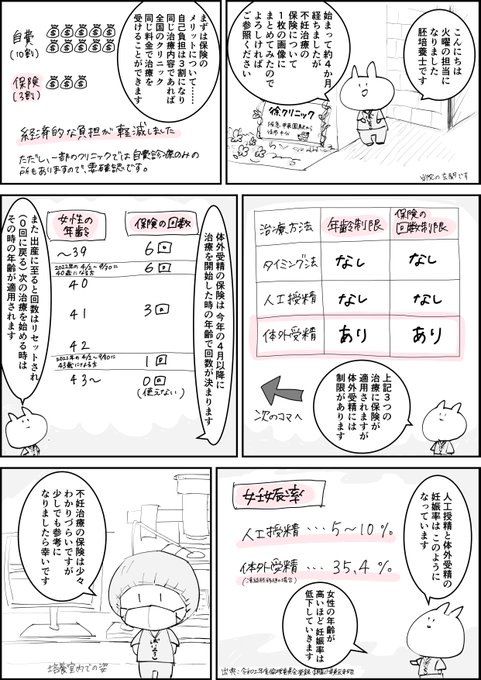 こんにちは
火曜の担当に
なりました
胚培養士です
始まって約4か月
経ちましたが
不妊治療の
保険について
1枚の画像に
まとめてみたので
よろしければ
ご参照ください
徐クリニック
当院の玄関です
まずは保険の
メリットについて……
自己負担は3割になり
同じ治療内容であれば
全国のクリニック
同じ料金で治療を
受けることができます
自費
(10割)
保険
(3割)
経済的な負担が軽減しました
ただし、一部のクリニックでは自費診療のみの
所もありますので、要確認です。
治療方法 年齢制限 保険の回数制限
タイミング法 なし なし
人工授精 なし なし
体外受精 あり あり
上記3つの
治療に保険が
適用されますが
体外受精には
制限があります
次のコマへ
体外受精の保険は今年の4月以降に
治療を開始した時の年齢で回数が決まります
女性の年齢 保険の回数
~39 6回
2022年の4/2~9/30に40歳になる方 6回
40
41 3回
42
2022年の4/2~9/30に43歳になる方 1回
43~ 0回
(使えない)
また出産に至ると回数はリセットされ
(0回に戻る)次の治療を始める時は
その時の年齢が適用されます
人工授精と体外受精の
妊娠率はこのように
なっています
妊娠率
人工授精…5~10%
体外受精…35.4%
女性の年齢が
高いほど妊娠率は
低下していきます
不妊治療の保険は少々
わかりづらいですが
少しでも参考に
なりましたら幸いです
培養室内での姿